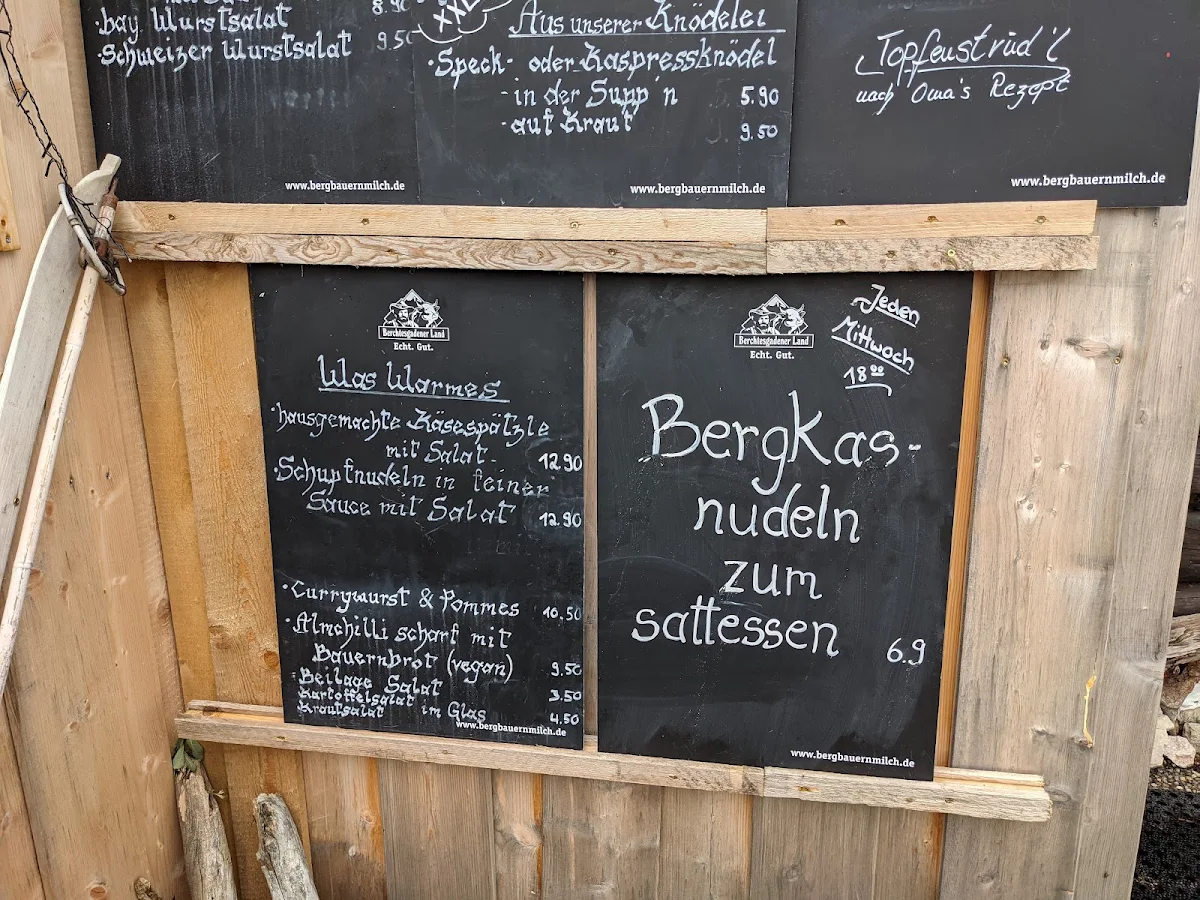 8.90
·bay. Wurstsalat
·Schweizer Wurstsalat 9.50
www.bergbauernmilch.de
XXL
Aus unserer Knödelei
·Speck- oder Kaspressknödel
-in der Supp'n 5.90
-auf Kraut 9.50
www.bergbauernmilch.de
Topfenstrud'l
nach Oma's Rezept
www.bergbauernmilch.de
Berchtesgadener Land
Echt. Gut.
Was Warmes
·hausgemachte Käsespätzle
mit Salat 12.90
·Schupfnudeln in feiner
Sauce mit Salat 12.90
·Currywurst & Pommes 10.50
·Almchilli scharf mit
Bauernbrot (vegan) 9.50
-Beilage Salat 3.50
Kartoffelsalat
Krautsalat im Glas 4.50
www.bergbauernmilch.de
Berchtesgadener Land
Echt. Gut.
Jeden
Mittwoch
18⁰⁰
Bergkas-
nudeln
zum
sattessen 6.9
www.bergbauernmilch.de